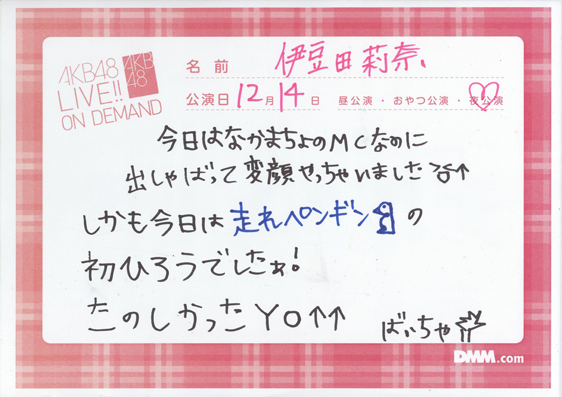 AKB48
LIVE!!
ON DEMAND
AKB
48
名前 伊豆田莉奈
公演日 12月14日 昼公演・おやつ公演・夜公演
今日はなかまちょのMCなのに
出しゃばって変顔やっちゃいました岩↑
しかも今日は走れペンギンの
初ひろうでしたぁ!
たのしかったYO↑↑
ばいちゃ
DMM.com